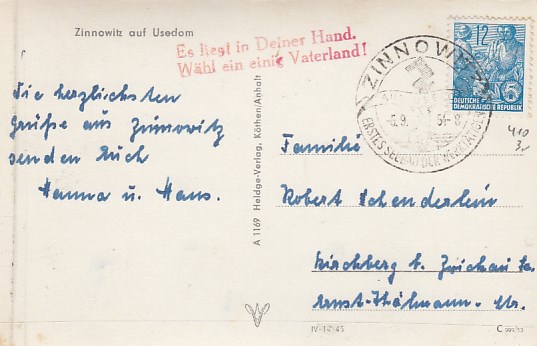 Zinnowitz auf Usedom
Es liegt in Deiner Hand.
Wähl ein einig Vaterland!
12
DEUTSCHE
DEMOKRATISCHE REPUBLIK
ZINNOWITZ
-5.9. 54-8
ERSTES SEEBAD DER WERKTÄTIGEN
410
3,-
Die herzlichsten
Grüße aus Zinnowitz
senden Euch
Hanna u. Hans.
A 1169 Heldge-Verlag, Köthen/Anhalt
Familie
Robert Schenderlein
Kirchberg b. Zwickau Sa.
Ernst-Thälmann-Str.
IV-14-45
C